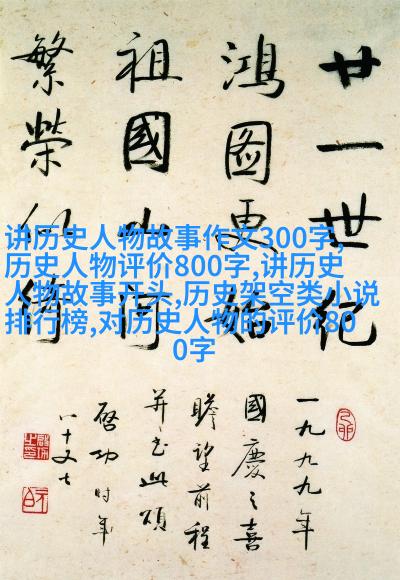 讲历史人物故事作文300字,
历史人物评价800字,讲历史
人物故事开头,历史架空类小说
排行榜,对历史人物的评价80
0字
廿一世纪
鸿图更始
祖國山河
繁榮似
一九九九年
國慶之喜
瞻望前程
并书此頌
啓功时年
八十又七